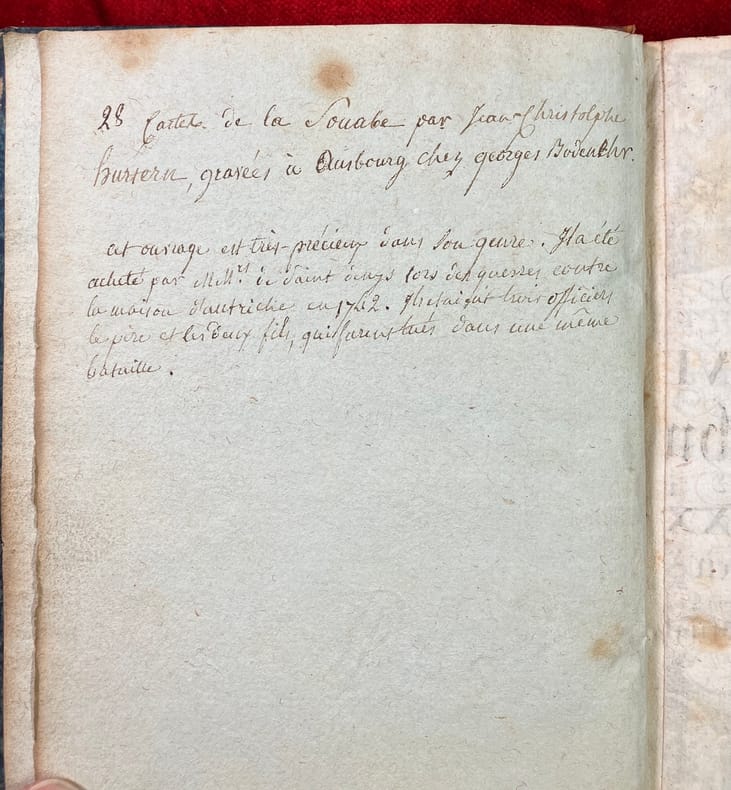 28 Cartes de la Souabe par Jean Christolphe
hurtern, gravées à Ausbourg chez georges Bodenehr.
cet ouvrage est très-précieux dans son genre. Il a été
acheté par MM.rs de Saint denys lors des guerres contre
la maison d'autriche en 1742. Ils étaient trois officiers
le père et les deux fils, qui furent tués dans une même
bataille.